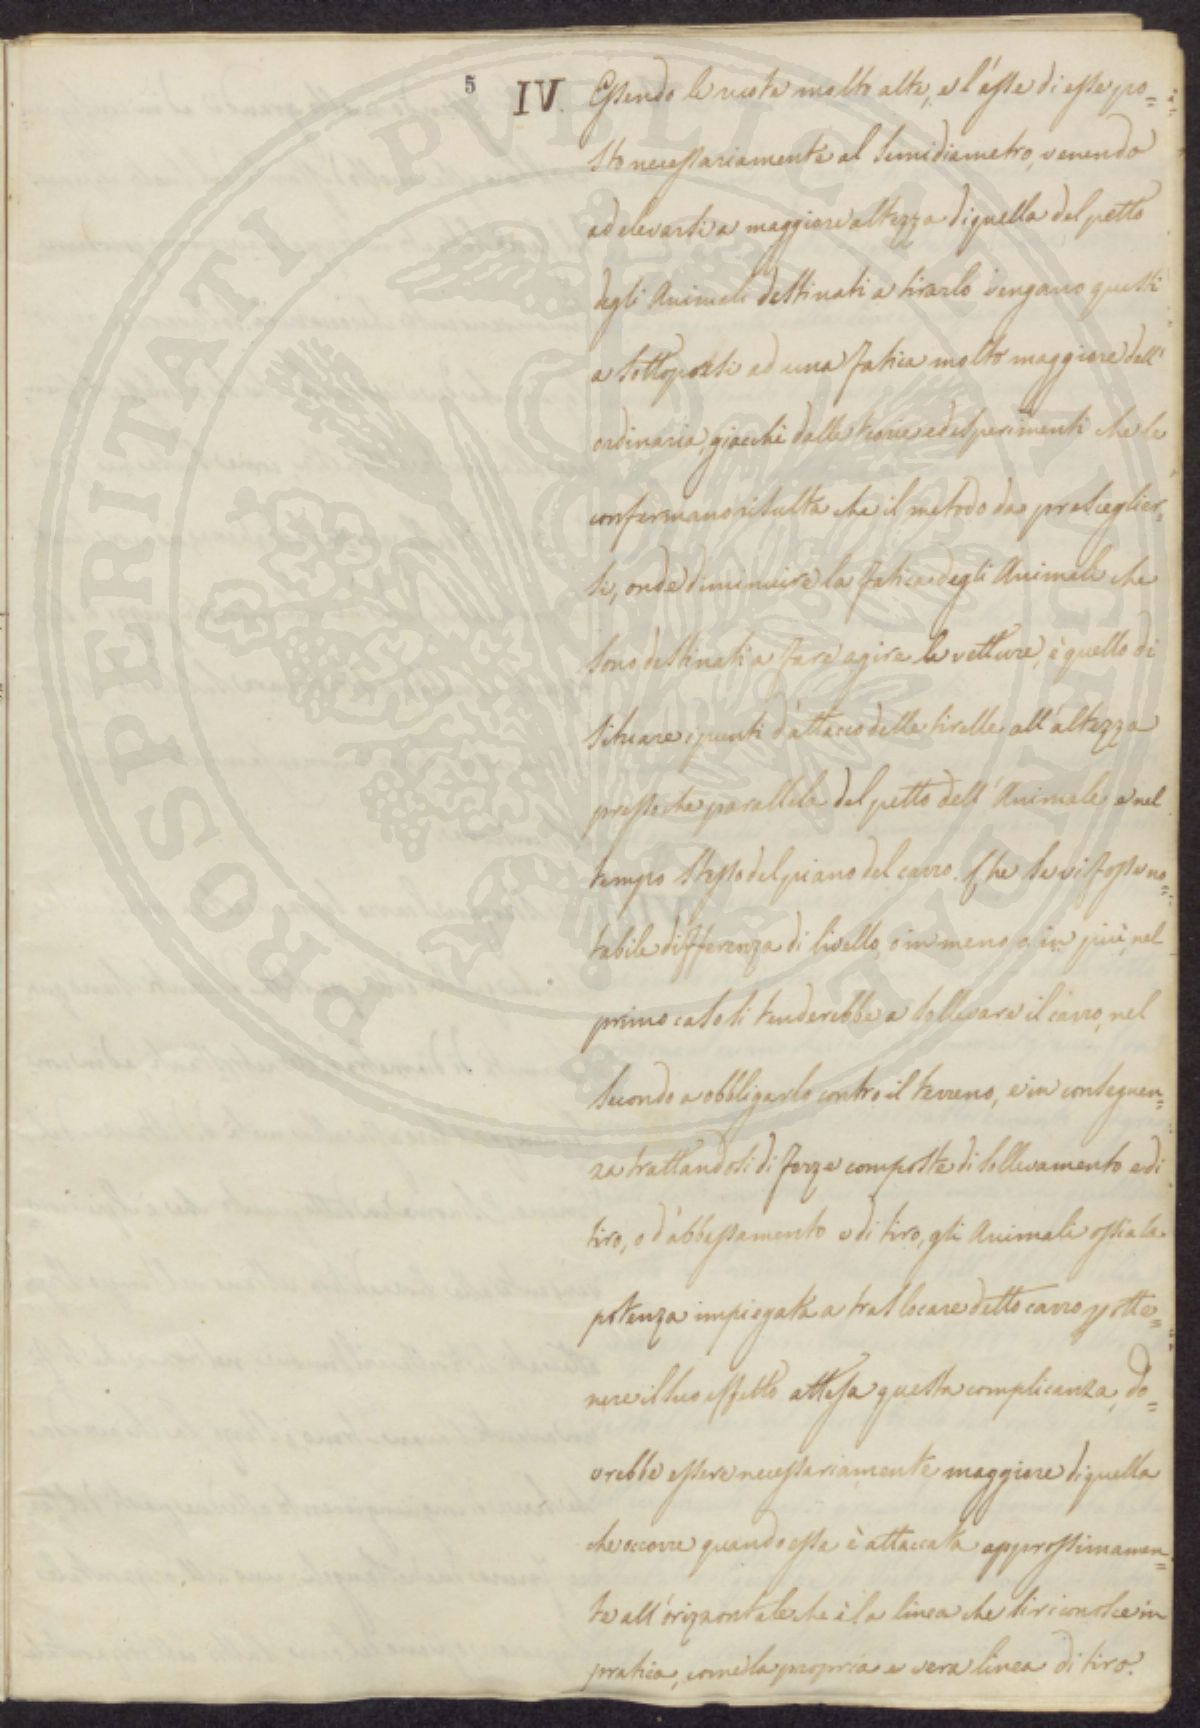 PROSPERITATI PVBLICAE AVGENDAE
5 IV. Essendo le ruote molto alte, e l'asse di esse po=
sto necessariamente al semidiametro, venendo
ad elevarsi a maggiore altezza di quella del petto
degli Animali destinati a tirarlo vengano questi
a sottoporsi ad una fatica molto maggiore dell'
ordinaria, giacchè dalle teorie ed esperimenti che le
confermano risulta che il metodo da presceglier=
si, onde diminuire la fatica degli Animali che
sono destinati a fare agire le vetture, è quello di
situare i punti d'attacco delle tirelle all'altezza
pressoche parallela del petto dell'Animale e nel
tempo stesso del piano del carro. Che se vi fosse no=
tabile differenza di livello, o in meno o in più, nel
primo caso si tenderebbe a sollevare il carro, nel
secondo a obbligarlo contro il terreno, e in conseguen=
za trattandosi di forze composte di sollevamento e di
tiro, o d'abbassamento e di tiro, gli Animali ossia la
potenza impiegata a traslocare detto carro p otte=
nere il suo effetto attesa questa complicanza, do=
vrebbe essere necessariamente maggiore di quella
che occorre quando essa è attaccata approssimamen=
te all'orizzontale che è la linea che si riconosce in
pratica, come la propria e vera linea di tiro.